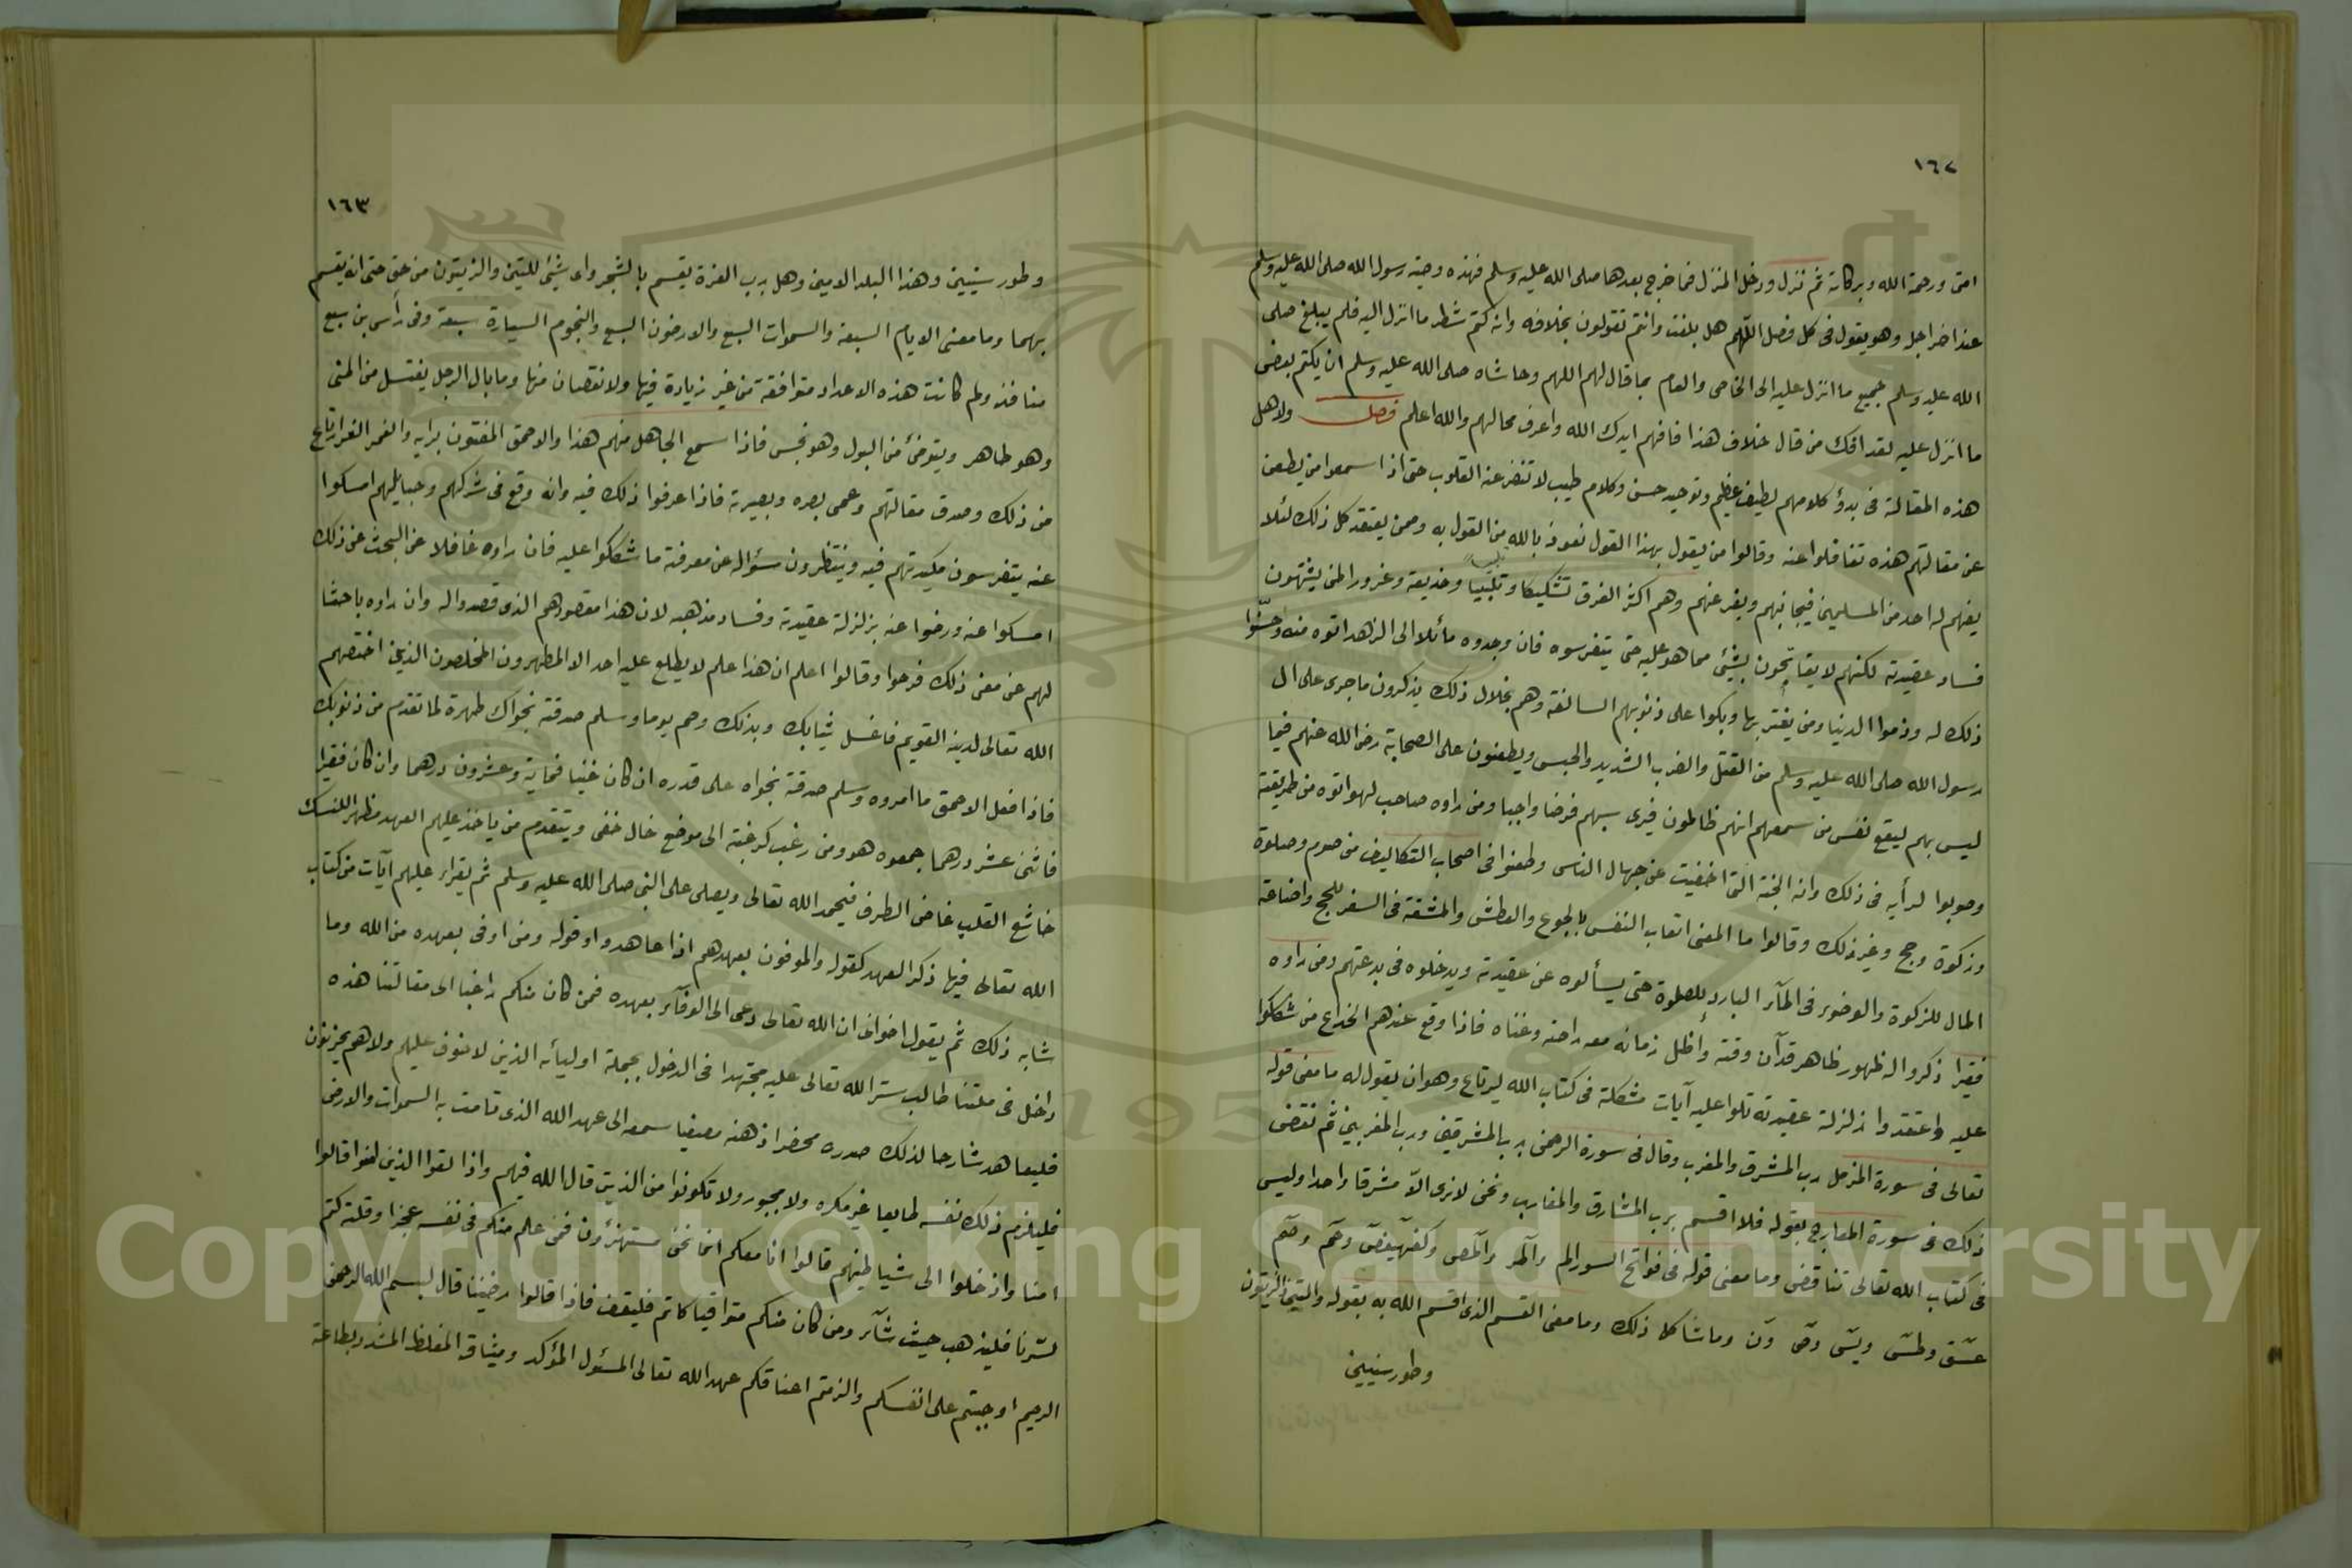 ١٦٢
امتى ورحمة الله وبركاته ثم نزل ودخل المنزل فما خرج بعدها صلى الله عليه وسلم فهذه وصية رسول الله صلى الله عليه وسلم
عند اخر اجل وهو يقول فى كل فصل اللهم هل بلغت وانتم تقولون بخلافه وانه كتم شطر ما انزل اليه فلم يبلغ صلى
الله عليه وسلم جميع ما انزل عليه الى الخاص والعام بما قال لهم اللهم وحاشاه صلى الله عليه وسلم ان يكتم بعض
ما انزل عليه لقد افك من قال خلاف هذا فافهم ايدك الله واعرف محالهم والله اعلم فصل ولاهل
هذه المقالة فى بدؤ كلامهم لطيف عظيم وتوحيد حسن وكلام طيب لا تنفر عنه القلوب حتى اذا سمعوا من يطعن
عن مقالتهم هذه تغافلوا عنه وقالوا من يقول بهذا القول نعوذ بالله من القول به وممن يعتقد كل ذلك لئلا
يفهم له احد من المسلمين فيجانبهم ويفر عنهم وهم اكثر الفرق تشكيكا وتلبيبا وخديعة وغرورا لمن يشتهون
فساد عقيدته لكنهم لا يفاتحون بشيئ مما هو عليه حتى يتفرسوه فان وجدوه مائلا الى الزهد اتوه منه وحسّنوا
ذلك له وذموا الدنيا ومن يغتر بها وبكوا على ذنوبهم السالفة وهم بخلال ذلك يذكرون ما جرى على ال
رسول الله صلى الله عليه وسلم من القتل والضرب الشديد والحبس ويطعنون على الصحابة رضى الله عنهم فيما
ليس بهم ليقع نفس من سمعهم انهم ظالمون فيرى سبهم فرضا واجبا ومن راوه صاحب لهو اتوه من طريقته
وصوبوا لرأيه فى ذلك وانه الجنة التى اخفيت عن جهال الناس وطعنوا فى اصحاب التكاليف من صوم وصلوة
وزكوة وحج وغير ذلك وقالوا ما المعنى اتعاب النفس بالجوع والعطش والمشقة فى السفر للحج واضاعة
المال للزكوة والوضوء فى المآء البارد للصلوة حتى يسألوه عن عقيدته ويدخلوه فى بدعتهم ومن راوه
فقيرا ذكروا له ظهور ظاهر قد آن وقته وأظل زمانه معه راحته وغناه فاذا وقع عندهم الخداع من شككوا
عليه واعتقدوا زلزلة عقيدته تلوا عليه آيات مشكلة فى كتاب الله ليرتاع وهو ان يقول له ما معنى قوله
تعالى فى سورة المزمل رب المشرق والمغرب وقال فى سورة الرحمن رب المشرقين ورب المغربين ثم نقض
ذلك فى سورة المعارج بقوله فلا اقسم برب المشارق والمغارب ونحن لا نرى الاّ مشرقا واحدا وليس
فى كتاب الله تعالى تناقض وما معنى قوله فى فواتح السور الم والمر والمص وكهيعص وحم وحم
عسق وطس ويس وص ون وما شاكل ذلك وما معنى القسم الذى اقسم الله به بقوله والتين والزيتون
وطور سينين
١٦٣
وطور سينين وهذا البلد الامين وهل برب العزة يقسم بالشجر واى شيئ للتين والزيتون من حق حتى انه يقسم
بهما وما معنى الايام السبعة والسموات السبع والارضون السبع والنجوم السيارة سبعة وفى رأس بن سبع
منافذ ولم كانت هذه الاعداد متوافقة من غير زيادة فيها ولا نقصان منها وما بال الرجل يغتسل من المنى
وهو طاهر ويتوضئ من البول وهو نجس فاذا سمع الجاهل منهم هذا والاحمق المفتون برايه والغمر الغر ارتاع
من ذلك وصدق مقالتهم وعمى بصره وبصيرته فاذا عرفوا ذلك فيه وانه وقع فى شركهم وحبايلهم امسكوا
عنه يتفرسون مكيدتهم فيه وينتظرون سؤاله عن معرفة ما شككوا عليه فان راوه غافلا عن البحث عن ذلك
امسكوا عنه ورضوا عنه بزلزلة عقيدته وفساد مذهبه لان هذا مقصودهم الذى قصدوا له وان راوه باحثا
لهم عن معنى ذلك فرحوا وقالوا اعلم ان هذا علم لا يطلع عليه احد الا المطهرون المخلصون الذين اختصهم
الله تعالى لدينه القويم فاغسل ثيابك وبدنك وصم يوما وسلم صدقة نجواك طهرة لما تقدم من ذنوبك
فاذا فعل الاحمق ما امروه وسلم صدقة نجواه على قدره ان كان غنيا فماية وعشرون درهما وان كان فقيرا
فاثنى عشر درهما جمعوه هو ومن رغب كرغبته الى موضع خال خفى ويتقدم من ياخذ عليهم العهد مظهر النسك
خاشع القلب غاض الطرف فيحمد الله تعالى ويصلى على النبى صلى الله عليه وسلم ثم يقراء عليهم آيات من كتاب
الله تعالى فيها ذكر العهد كقوله والموفون بعهدهم اذا عاهدوا وقوله ومن اوفى بعهده من الله وما
شابه ذلك ثم يقول اخوانى ان الله تعالى دعى الى الوفآء بعهده فمن كان منكم راغبا الى مقالتنا هذه
داخل فى ملتنا طالب ستر الله تعالى عليه مجتهدا فى الدخول بجملة اوليائه الذين لا خوف عليهم ولا هم يحزنون
فليعاهد شارحا لذلك صدره محضرا ذهنه مصغيا سمعه الى عهد الله الذى قامت به السموات والارض
فليلزم ذلك نفسه طايعا غير مكره ولا مجبور ولا تكونوا من الذين قال الله فيهم واذا لقوا الذين امنوا قالوا
امنا واذ خلوا الى شياطينهم قالوا انا معكم انما نحن مستهزؤن فمن علم منكم فى نفسه عجزا وقلة كتم
لسّرنا فليذهب حيث شآء ومن كان منكم متواقيا كاتم فليقف فاذا قالوا رضينا قال بسم الله الرحمن
الرحيم اوجبتم على انفسكم والزمتم اعناقكم عهد الله تعالى المسئول المؤكد وميثاقه المغلظ المشدد بطاعة
Copyright © King Saud University